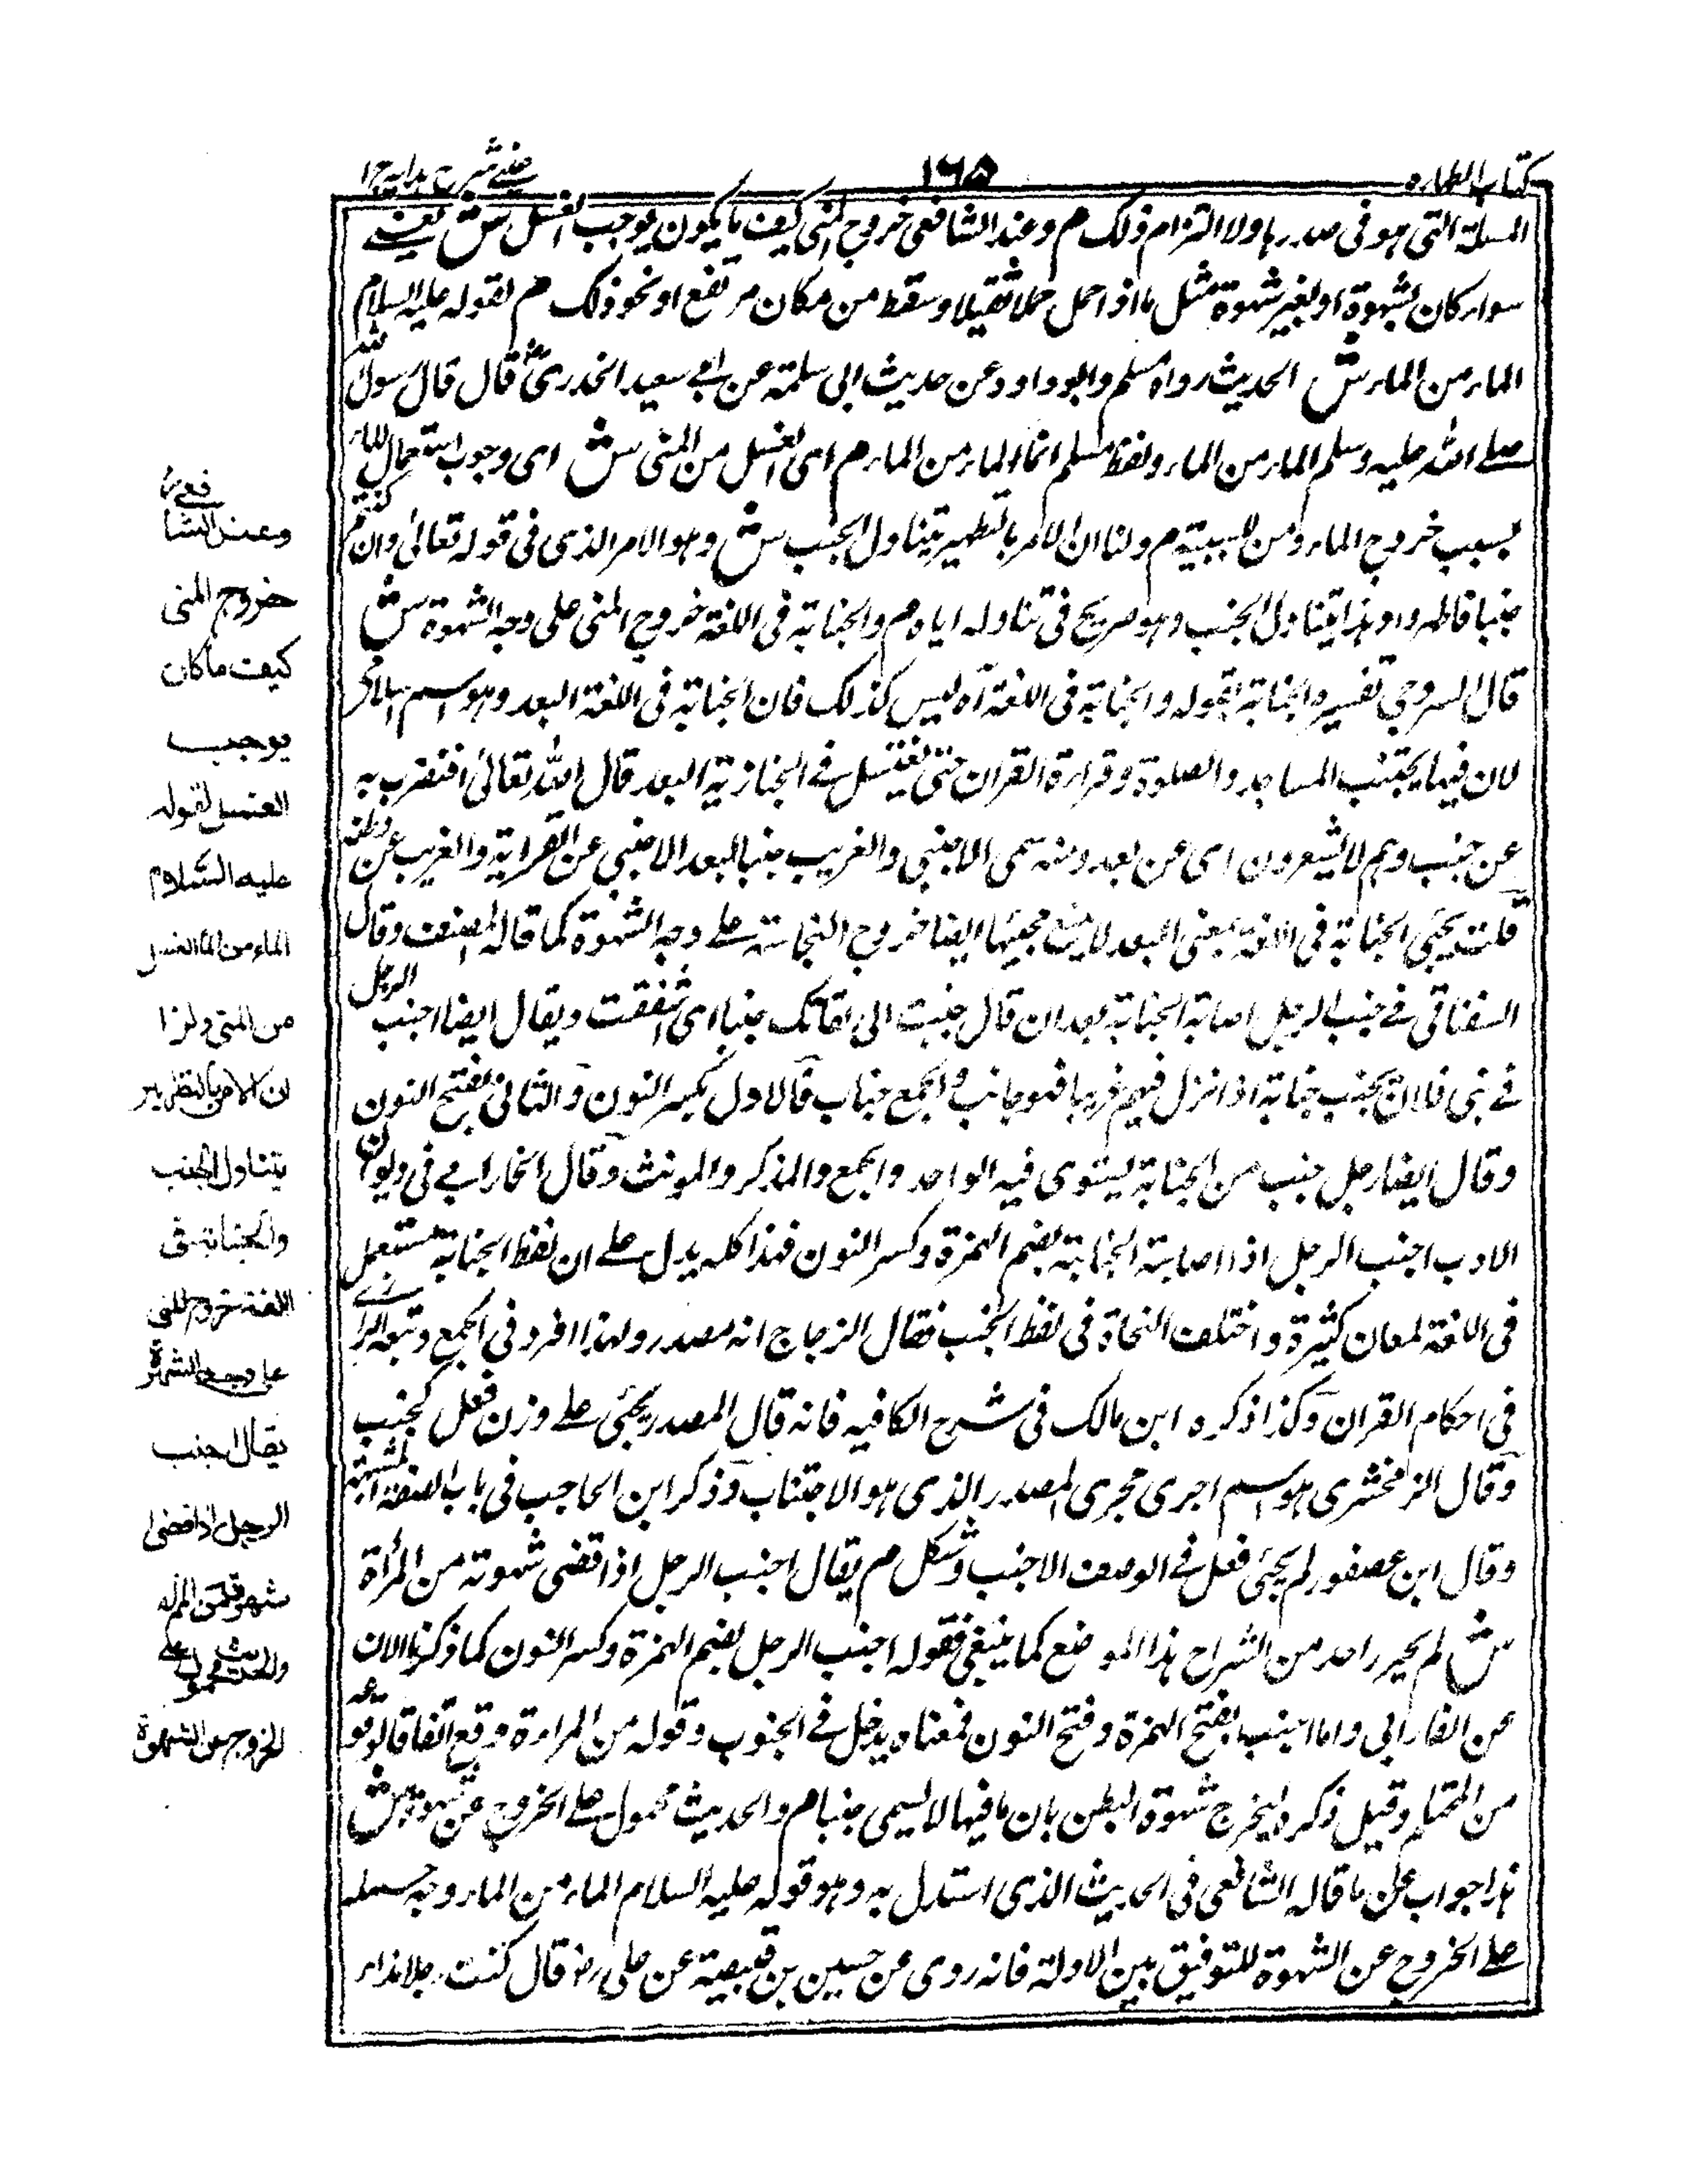 كتاب الطهارة
١٦٥
عيني شرح هداية ج ١
المسئلة التي هو في صدرها ولا التزام ذلك م وعند الشافعي خروج المني كيف ما يكون يوجب الغسل ش يعني
سواء كان بشهوة او بغير شهوة مثل ما اذا حمل حملا ثقيلا وسقط من مكان مرتفع او نحو ذلك م لقوله عليه السلام
الماء من الماء ش الحديث رواه مسلم وابو داود عن حديث ابي سلمة عن ابي سعيد الخدري رض قال قال رسول الله
صلے الله عليه وسلم الماء من الماء ولفظ مسلم انما الماء من الماء م اى الغسل من المنى ش اى وجوب استعمال الماء
بسبب خروج الماء ومن للسببية م ولنا ان الامر بالتطهير يتناول الجنب ش وهو الامر الذى فى قوله تعالى وان كنتم
جنبا فاطهروا وهذا يتناول الجنب وهو صريح فى تناوله اياه م والجنابة فى اللغة خروج المنى على وجه الشهوة ش
قال السروجي تفسيره الجنابة بقوله والجنابة فى اللغة آه ليس كذلك فان الجنابة فى اللغة البعد وهو اسم اسلامى
لان فيها يجتنب المساجد والصلوة وقراءة القران حتى يغتسل فے الجنازية البعد قال الله تعالى افتضرب به
عن جنب وهم لا يشعرون اى عن بعد ومنه سمى الاجنبي والغريب جنبا لبعد الاجنبي عن القرابة والغريب عن وطنه
قلت يجئ الجنابة فى اللغة بمعنى البعد لا يمنع مجيئها ايضا خروج النجاسة علے وجه الشهوة كما قاله المصنف وقال
السغناقى فے جنب الرجل اصابة الجنابة بعد ان قال جنبت الى لقائك جنبا اى اشفقت ويقال ايضا اجنب الرجل
فے بنى فلان يجنب جنابة اذا نزل فيهم غريبا فهو جانب والجمع جناب قالاول بكسر النون والثانى بفتح النون
وقال ايضا رجل جنب من الجنابة يستوى فيه الواحد والجمع والمذكر والمونث وقال الخارابے فى ديوان
الادب اجنب الرجل اذا اصابته الجنابة بضم الهمزة وكسر النون فهذا كله يدل علے ان لفظ الجنابة مستعمل
فى اللغة لمعان كثيرة واختلف النحاة فى لفظ الجنب فقال الزجاج انه مصدر ولهذا افرد فى الجمع وتبعه الرازے
فى احكام القران وكذا ذكره ابن مالك فى شرح الكافيه فانه قال المصدر يجئ علے وزن فعل كجنب
وقال الزمخشرى هو اسم اجرى مجرى المصدر الذى هو الاجتناب وذكر ابن الحاجب فى باب الصفة المشبهة
وقال ابن عصفور لم يجئ فعل فے الوصف الا جنب وشكل م يقال اجنب الرجل اذا قضى شهوته من المرأة
ش لم يحرر احد من الشراح هذا الموضع كما ينبغى فقوله اجنب الرجل بضم الهمزة وكسر النون كما ذكرنا الان
عن الفارابى واما اجنب بفتح الهمزة وفتح النون فمعناه يدخل فے الجنوب وقوله من المراءة وقع اتفاقا لوقوعه
من المحتلم وقيل ذكره ليخرج شهوة البطن بان ما فيها لا يسمى جنبا م والحديث محمول علے الخروج عن شهوة ش
هذا جواب عن ما قاله الشافعى فى الحديث الذى استدل به وهو قوله عليه السلام الماء من الماء وجه حمله
علے الخروج عن الشهوة للتوفيق بين الادلة فانه روى عن حسين بن قبيصة عن على رض قال كنت رجلا مذاء
وعند الشافعي رح
خروج المنى
كيف ما كان
يوجب
الغسل لقوله
عليه السلام
الماء من الماء الغسل
من المنى ولنا
ان الامر بالتطهير
يتناول الجنب
والجنابة فى
اللغة خروج المنى
على وجه الشهوة
يقال اجنب
الرجل اذا قضى
شهوته من المرأة
والحديث محمول على
الخروج عن الشهوة